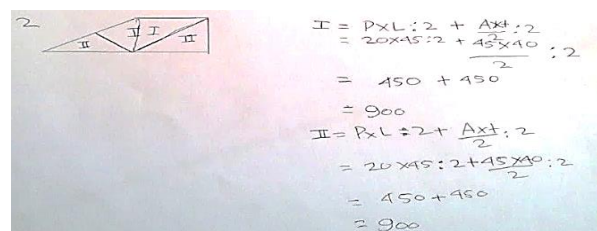 2
II II I II
I = PxL:2 + Axt/2:2
= 20x45:2 + 45x40/2 :2
= 450 + 450
= 900
II = PxL:2 + Axt/2:2
= 20x45:2+45x40/2:2
= 450+450
= 900